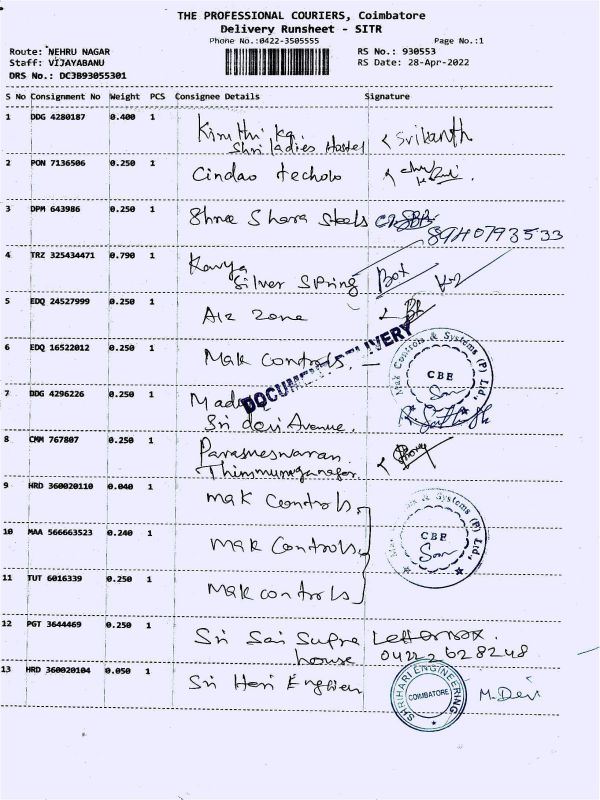 THE PROFESSIONAL COURIERS, Coimbatore
Delivery Runsheet - SITR
Phone No.:0422-3505555 Page No.:1
Route: NEHRU NAGAR RS No.: 930553
Staff: VIJAYABANU RS Date: 28-Apr-2022
DRS No.: DC3B93055301
S No Consignment No Weight PCS Consignee Details Signature
1 DDG 4280187 0.400 1
Shri ladies Hostel Srikanth
2 PON 7136506 0.250 1 Cindao techolo
3 DPM 643986 0.250 1 Shree Shara Steels
8940793533
4 TRZ 325434471 0.790 1 Kavya
Silver Spring Box
5 EDQ 24527999 0.250 1 Air Zone
6 EDQ 16522012 0.250 1 Mak Controls.
DOCUMENT DELIVERY
Mak Controls & Systems (P) Ltd.,
CBE
7 DDG 4296226 0.250 1
Sri devi Avenue.
8 CMM 767807 0.250 1 Parameswaran
9 HRD 360020110 0.040 1 Mak Controls
10 MAA 566663523 0.240 1 Mak Controls
Mak Controls & Systems (P) Ltd.,
CBE
11 TUT 6016339 0.250 1 Mak controls
12 PGT 3644469 0.250 1 Sri Sai Supra Letterbox.
house
13 HRD 360020104 0.050 1 Sri Hari Engineer
SHRIHARI ENGINEERING
COIMBATORE
M. Devi